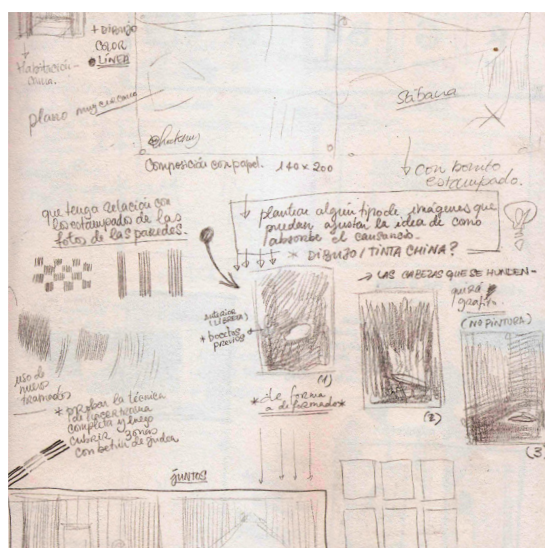 + DIBUJO
COLOR
LÍNEA
Habitación
china.
plano muy cercano
Sábana
Composición con papel. 140 x 200
con bonito
estampado.
que tenga relación con
los estampados de las
fotos de las paredes.
plantear algún tipo de imágenes que
puedan ajustar la idea de como
absorbe el cansancio
* DIBUJO / TINTA CHINA?
→ LAS CABEZAS QUE SE HUNDEN-
(NO PINTURA)
+ bocetos
previos
(1)
(2)
(3)
uso de
nuevo
tramado
* probar la técnica
de hacer trama
completa y luego
cubrir zonas
con betún de judea
* de forma
a deformado *
JUNTOS